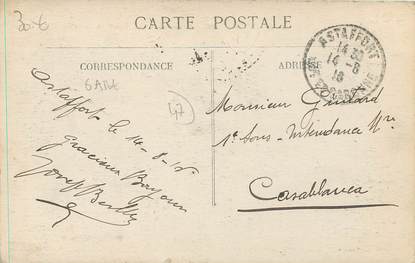 30-6
CARTE POSTALE
CORRESPONDANCE
ADR
GARE
47
ASTAFFORT
14 30
14 -8
16
GARONNE
Astaffort le 14-8-16
Gracieux Bonjour
Joseph
Monsieur Guitard
1e Sous-Intendance Mre
Casablanca